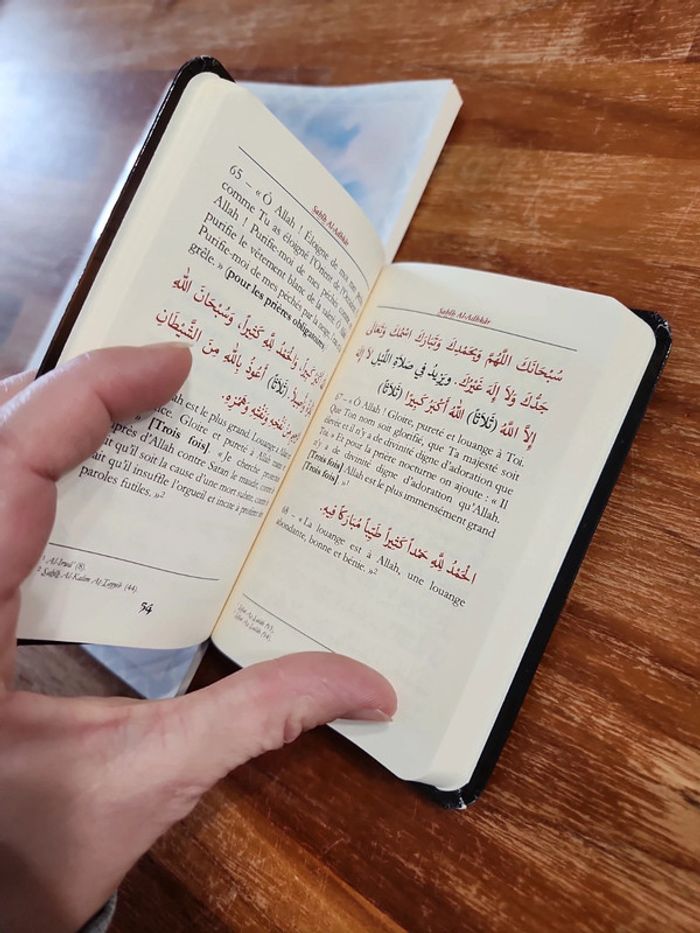 Sahîh Al-Adhkâr
65 – « Ô Allah ! Éloigne de moi mes
comme Tu as éloigné l'Orient de l'Occident
Allah ! Purifie-moi de mes péchés comme
purifie le vêtement blanc de la saleté. Ô
Purifie-moi de mes péchés par la neige, l'eau
grêle. » (pour les prières obligatoires)
كَبِيراً، وَالحَمْدُ لِلَّهِ كَثِيراً، وَسُبْحَانَ اللَّهِ
(ثَلَاثاً) أَعُوذُ بِاللَّهِ مِنَ الشَّيْطَانِ
مِنْ نَفْخِهِ وَنَفْثِهِ وَهَمْزِهِ.
Allah est le plus grand. Louange à Allah
Gloire et pureté à Allah
[Trois fois]. « Je cherche protection
auprès d'Allah contre Satan le maudit, contre
qu'il soit la cause d'une mort subite, contre
qu'il insuffle l'orgueil et incite à proférer des
paroles futiles. »²
¹ Al-Irwâ' (8).
² Sahîh Al-Kalim At-Tayyib (44).
54
Sahîh Al-Adhkâr
سُبْحَانَكَ اللَّهُمَّ وَبِحَمْدِكَ وَتَبَارَكَ اسْمُكَ وَتَعَالَى
جَدُّكَ وَلَا إِلَهَ غَيْرُكَ. وَيَزِيدُ فِي صَلَاةِ اللَّيْلِ لَا إِلَهَ
إِلَّا اللَّهُ (ثَلَاثاً) اللَّهُ أَكْبَرُ كَبِيرًا (ثَلَاثاً)
67 – « Ô Allah ! Gloire, pureté et louange à Toi.
Que Ton nom soit glorifié, que Ta majesté soit
élevée et il n'y a de divinité digne d'adoration que
Toi. » Et pour la prière nocturne on ajoute : « Il
n'y a de divinité digne d'adoration qu'Allah.
[Trois fois] Allah est le plus immensément grand
[Trois fois]. »¹
الحَمْدُ لِلَّهِ حَمْداً كَثِيراً طَيِّباً مُبَارَكاً فِيهِ.
68 – « La louange est à Allah, une louange
abondante, bonne et bénie. »²